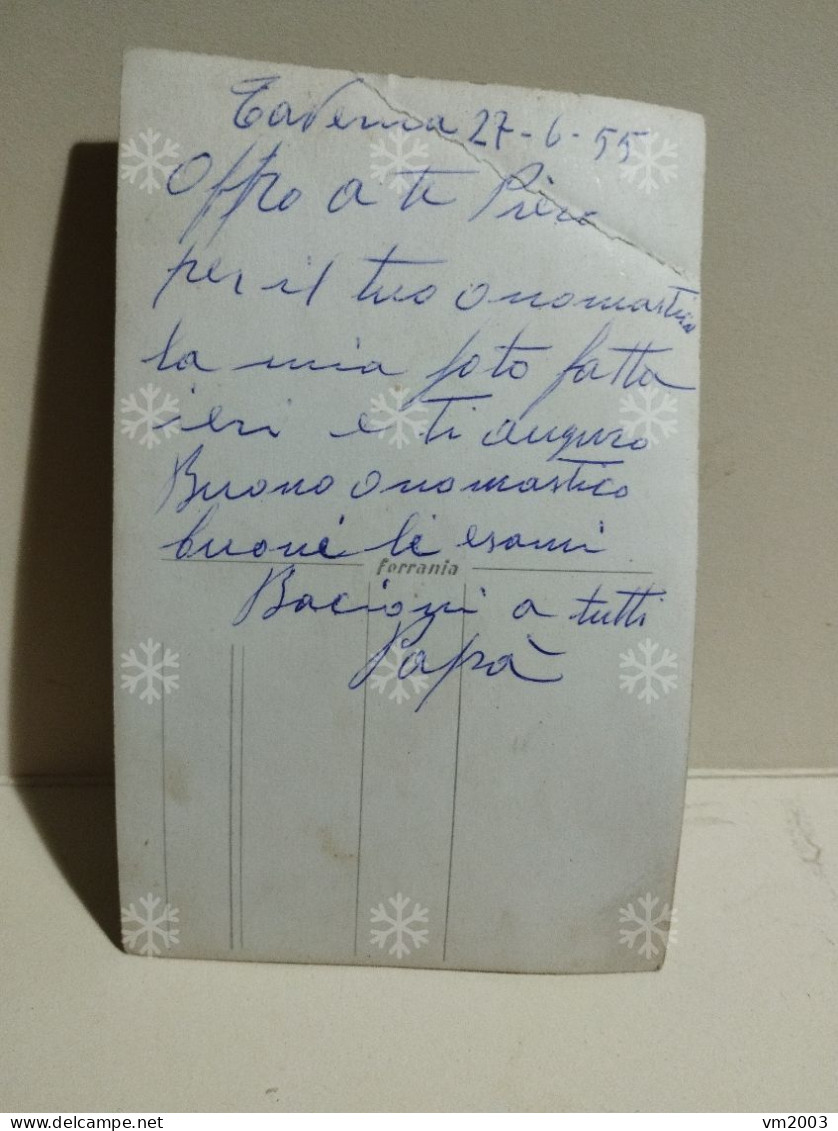 Taverna 27-6-55
Offro a te Piero
per il tuo onomastico
la mia foto fatta
ieri e ti auguro
Buono onomastico
buone le esami
Ferrania
Bacioni a tutti
Papà
delcampe.net
vm2003